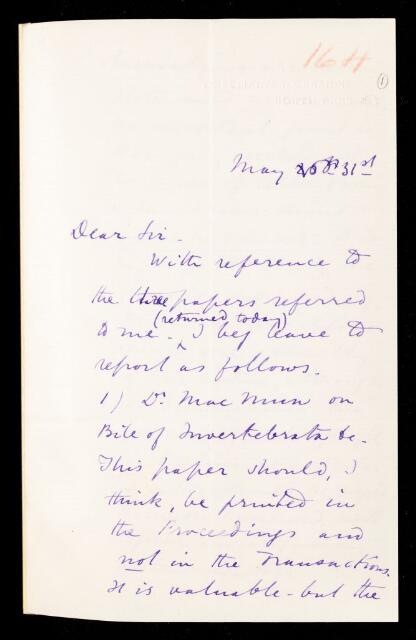 164
(1)
May 26th 31st
Dear Sir -
With reference to
the three papers referred
(returned today)
to me - I beg leave to
report as follows.
1) Dr. MacMunn on
Bile of Invertebrata &c.
This paper should, I
think, be printed in
the Proceedings and
not in the Transactions.
It is valuable - but the